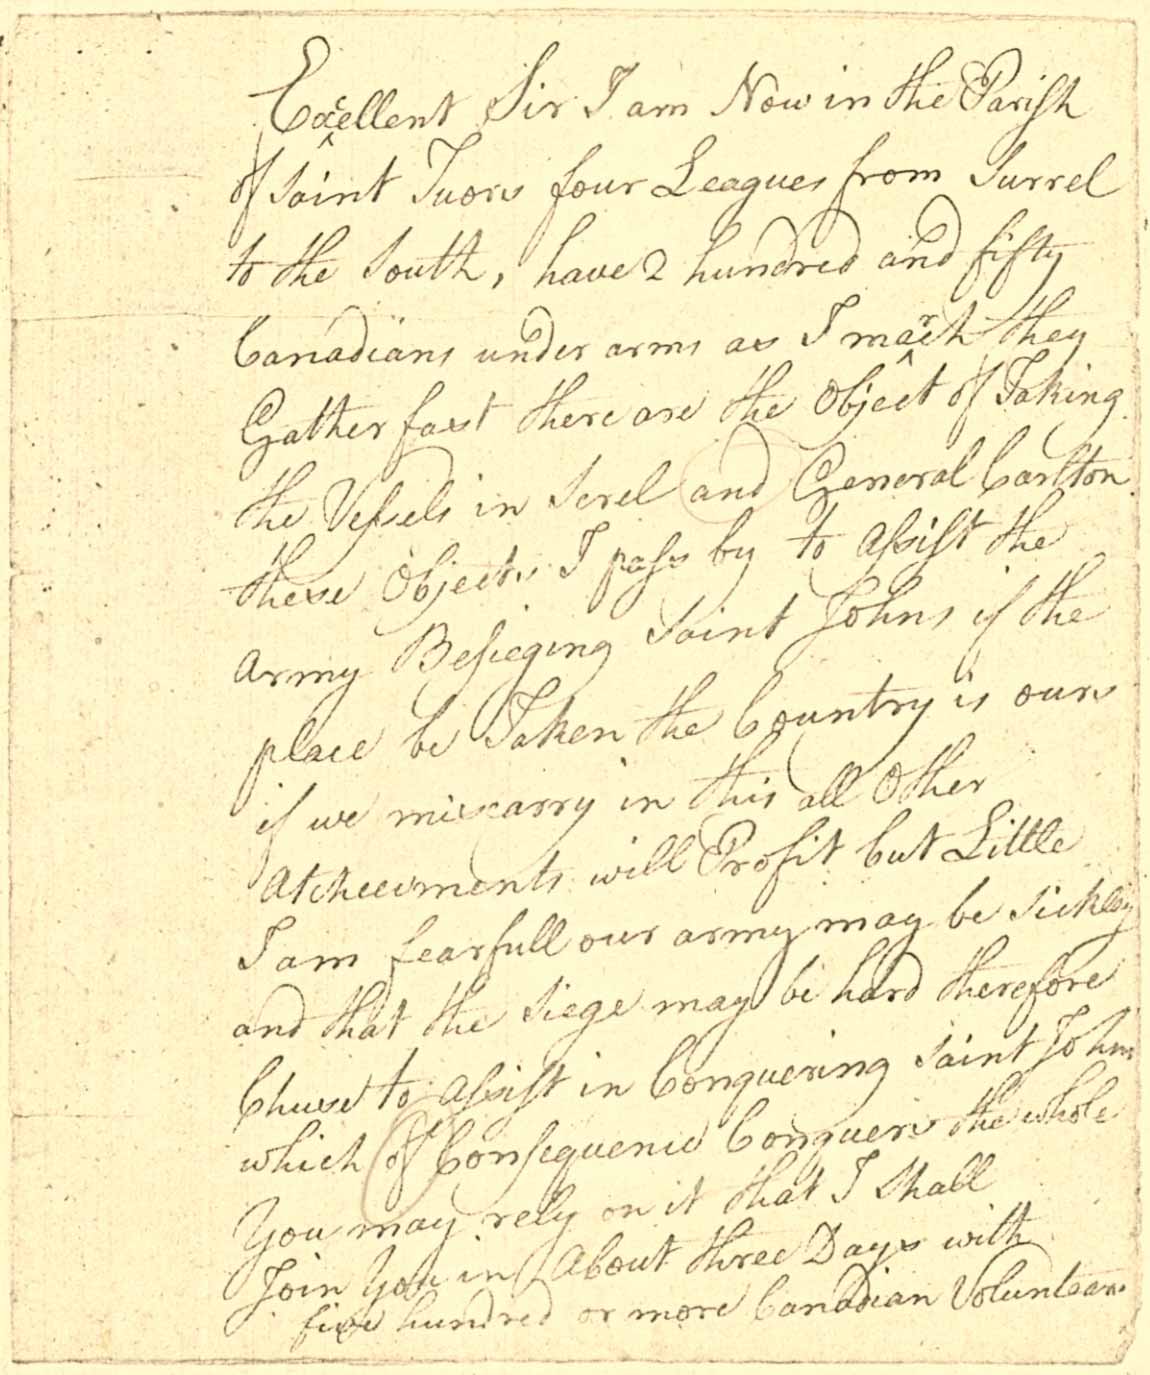 Excellent Sir I am Now in the Parish
of saint Tuors four Leagues from Surrel
to the South, have 2 hundred and fifty
Canadians under arms as I march they
Gather fast there are the Object of Taking
the Vessels in Serel and General Carlton
these Objects I pass by to assist the
army Besieging Saint Johns if the
place be Taken the Country is ours
if we miscarry in this all Other
atcheevments will Profit but Little
I am fearfull our army may be Sickley
and that the Siege may be hard therefore
Chuse to assist in Conquering Saint Johns
which of Consequence Conquers the whole
You may rely on it that I shall
Join You in About three Days with
five hundred or more Canadian Voluntears